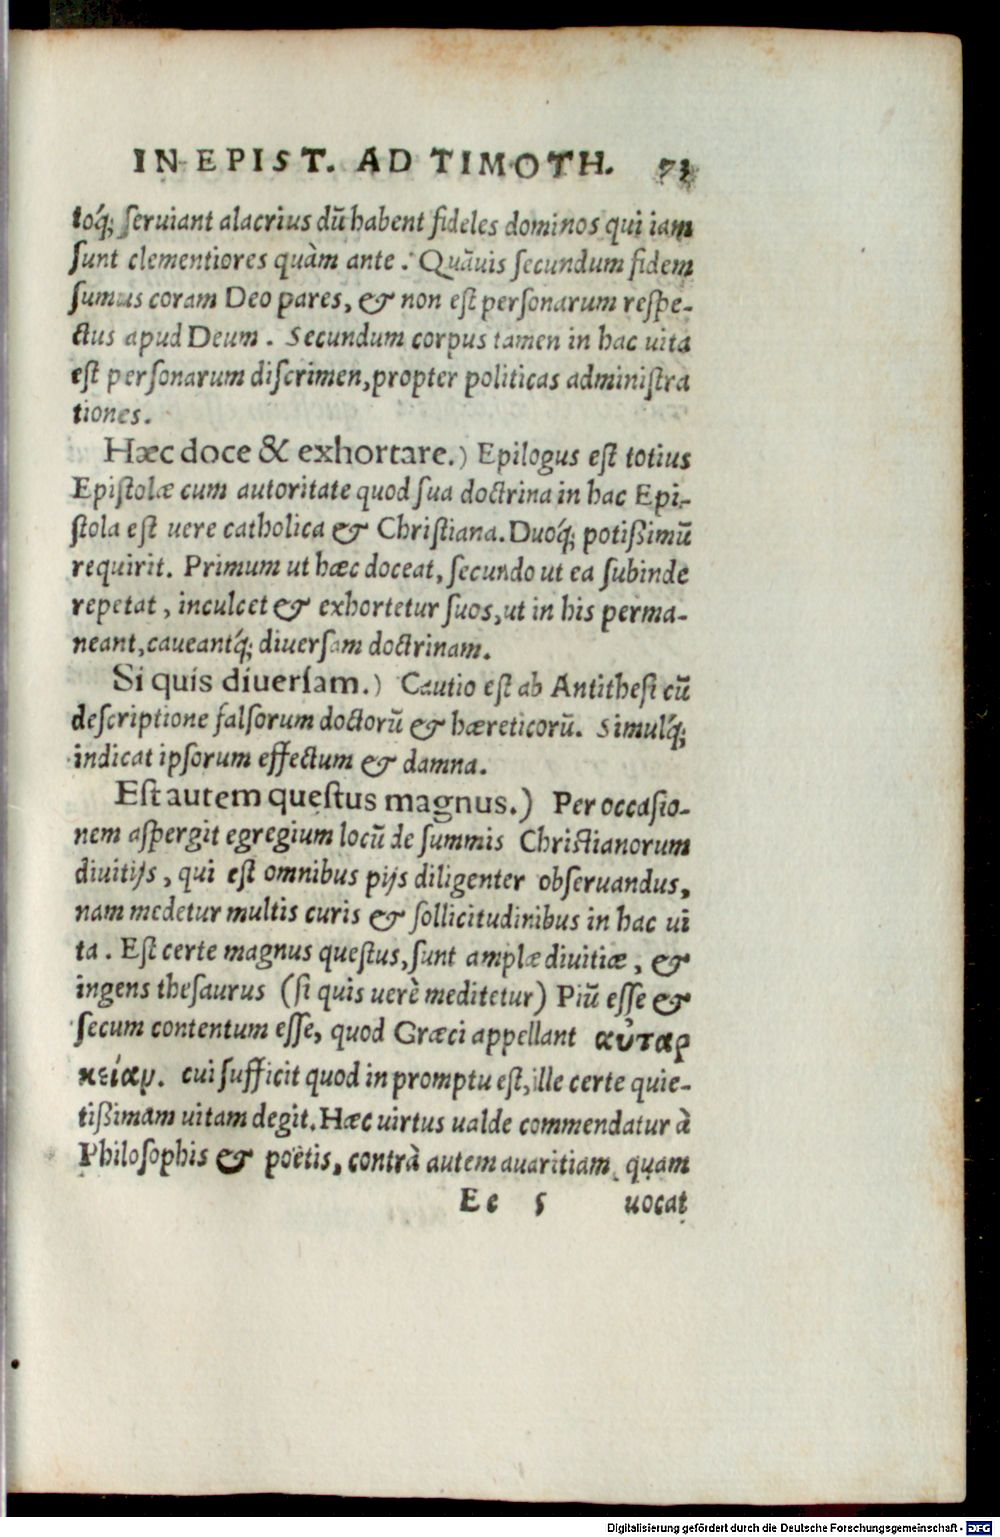 IN EPIST. AD TIMOTH. 73
toq́; ſeruiant alacrius dū habent fideles dominos qui iam
ſunt clementiores quàm ante. Quāuis ſecundum fidem
ſumus coram Deo pares, & non eſt perſonarum reſpe-
ctus apud Deum. Secundum corpus tamen in hac uita
eſt perſonarum diſcrimen, propter politicas adminiſtra
tiones.
Hæc doce & exhortare.) Epilogus eſt totius
Epiſtolæ cum autoritate quod ſua doctrina in hac Epi-
ſtola eſt uere catholica & Chriſtiana. Duoq́; potißimū
requirit. Primum ut hæc doceat, ſecundo ut ea ſubinde
repetat, inculcet & exhortetur ſuos, ut in his perma-
neant, caueantq́; diuerſam doctrinam.
Si quis diuerſam.) Cautio eſt ab Antitheſi cū
deſcriptione falſorum doctorū & hæreticorū. Simulq́;
indicat ipſorum effectum & damna.
Eſt autem queſtus magnus.) Per occaſio-
nem aſpergit egregium locū de ſummis Chriſtianorum
diuitijs, qui eſt omnibus pijs diligenter obſeruandus,
nam medetur multis curis & ſollicitudinibus in hac ui
ta. Eſt certe magnus queſtus, ſunt amplæ diuitiæ, &
ingens theſaurus (ſi quis uerè meditetur) Piū eſſe &
ſecum contentum eſſe, quod Græci appellant αὐταρ
κείαν. cui ſufficit quod in promptu eſt, ille certe quie-
tißimam uitam degit. Hæc uirtus ualde commendatur à
Philoſophis & poëtis, contrà autem auaritiam quam
Ee 5 uocat
Digitalisierung gefördert durch die Deutsche Forschungsgemeinschaft - DFG